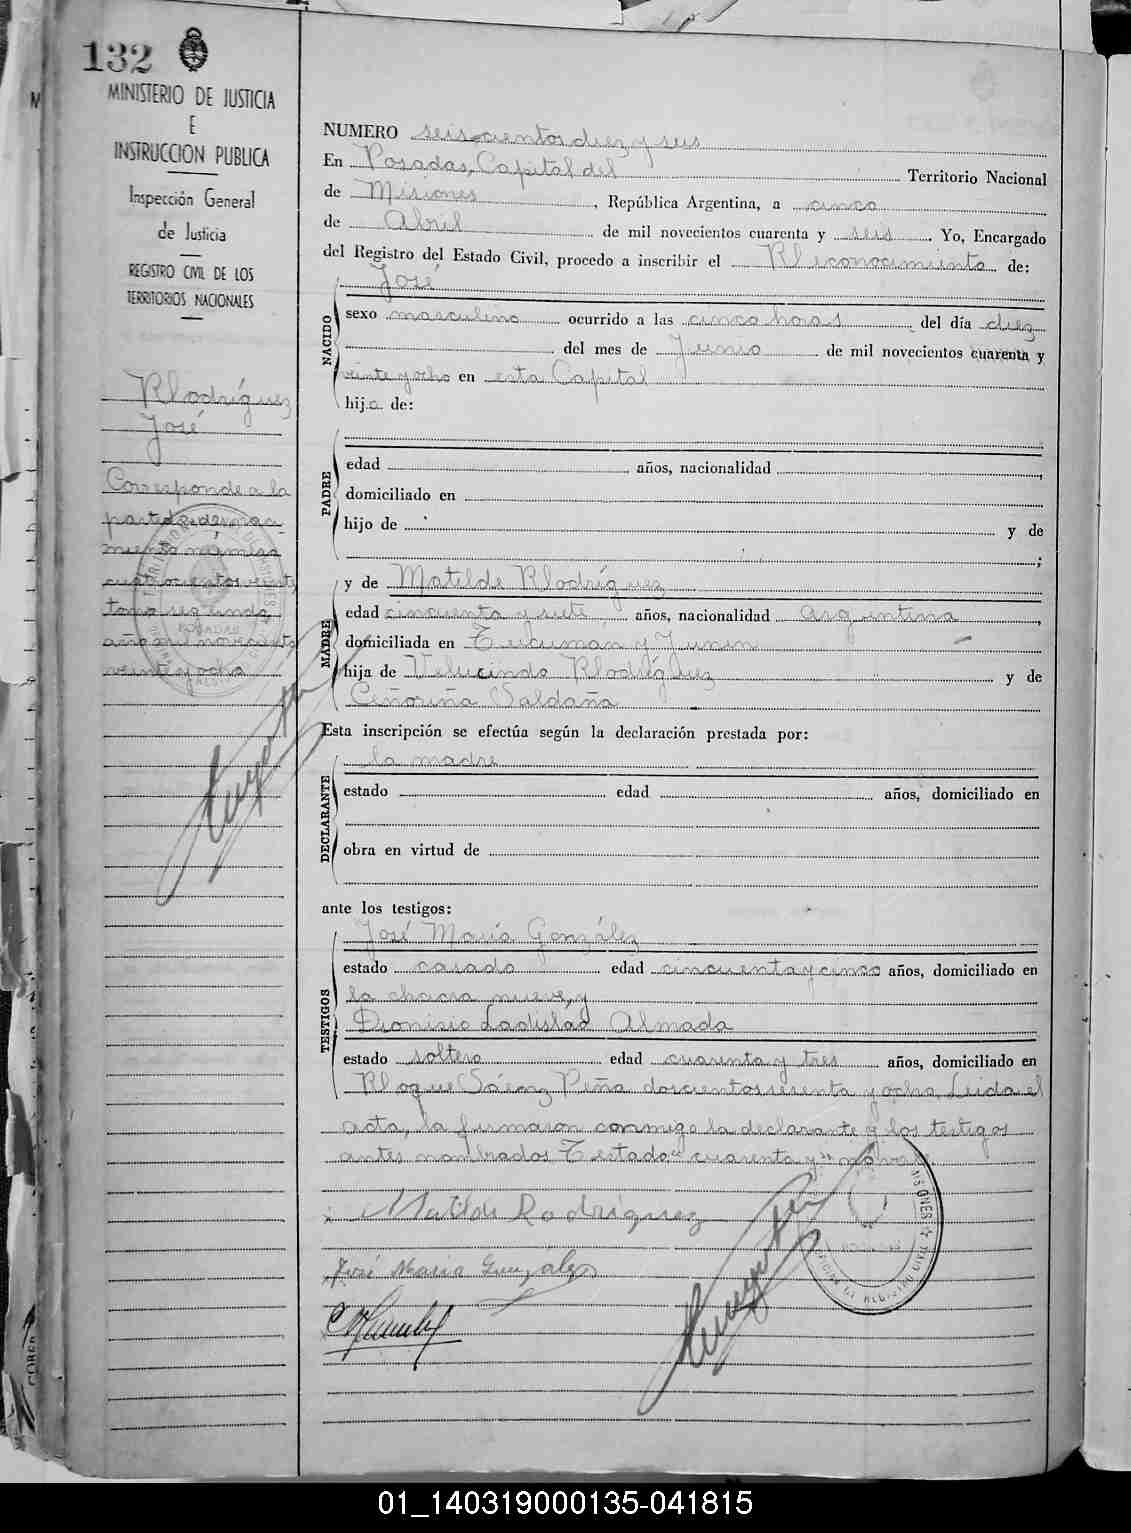 132
MINISTERIO DE JUSTICIA
E
INSTRUCCION PUBLICA
Inspección General
de Justicia
REGISTRO CIVIL DE LOS
TERRITORIOS NACIONALES
Rodríguez
José
Corresponde a la
partida de naci
miento número
cuatrocientos veinte
tomo segundo
año mil novecientos
veinte y ocho
NUMERO seiscientos diez y seis
En Posadas, Capital del Territorio Nacional
de Misiones, República Argentina, a cinco
de Abril de mil novecientos cuarenta y seis. Yo, Encargado
del Registro del Estado Civil, procedo a inscribir el Reconocimiento de:
José
NACIDO
sexo masculino ocurrido a las cinco horas del día diez
del mes de Junio de mil novecientos cuarenta y
veinte y ocho en esta Capital
hijo de:
PADRE
edad años, nacionalidad ,
domiciliado en
hijo de y de
;
MADRE
y de Matilde Rodríguez
edad cincuenta y siete años, nacionalidad argentina,
domiciliada en Tucumán y Junín
hija de Rodríguez y de
Saldaña
Esta inscripción se efectúa según la declaración prestada por:
la madre
DECLARANTE
estado edad años, domiciliado en
obra en virtud de
ante los testigos:
TESTIGOS
José María González
estado casado edad cincuenta y cinco años, domiciliado en
la chacra nueve, y
Dionisio Ladislao Almada
estado soltero edad cuarenta y tres años, domiciliado en
Roque Sáenz Peña doscientos sesenta y ocho. Leida el
acta, la firmaron conmigo la declarante y los testigos
antes nombrados. Testado "cuarenta y" no vale
Matilde Rodriguez
José Maria González
01_140319000135-041815